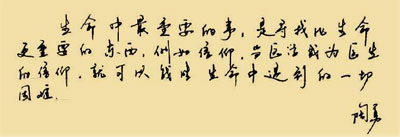 生命中最重要的事，是寻找比生命
更重要的东西，例如信仰，当医治成为医生
的信仰，就可以战胜生命中遇到的一切
困难．
陶勇